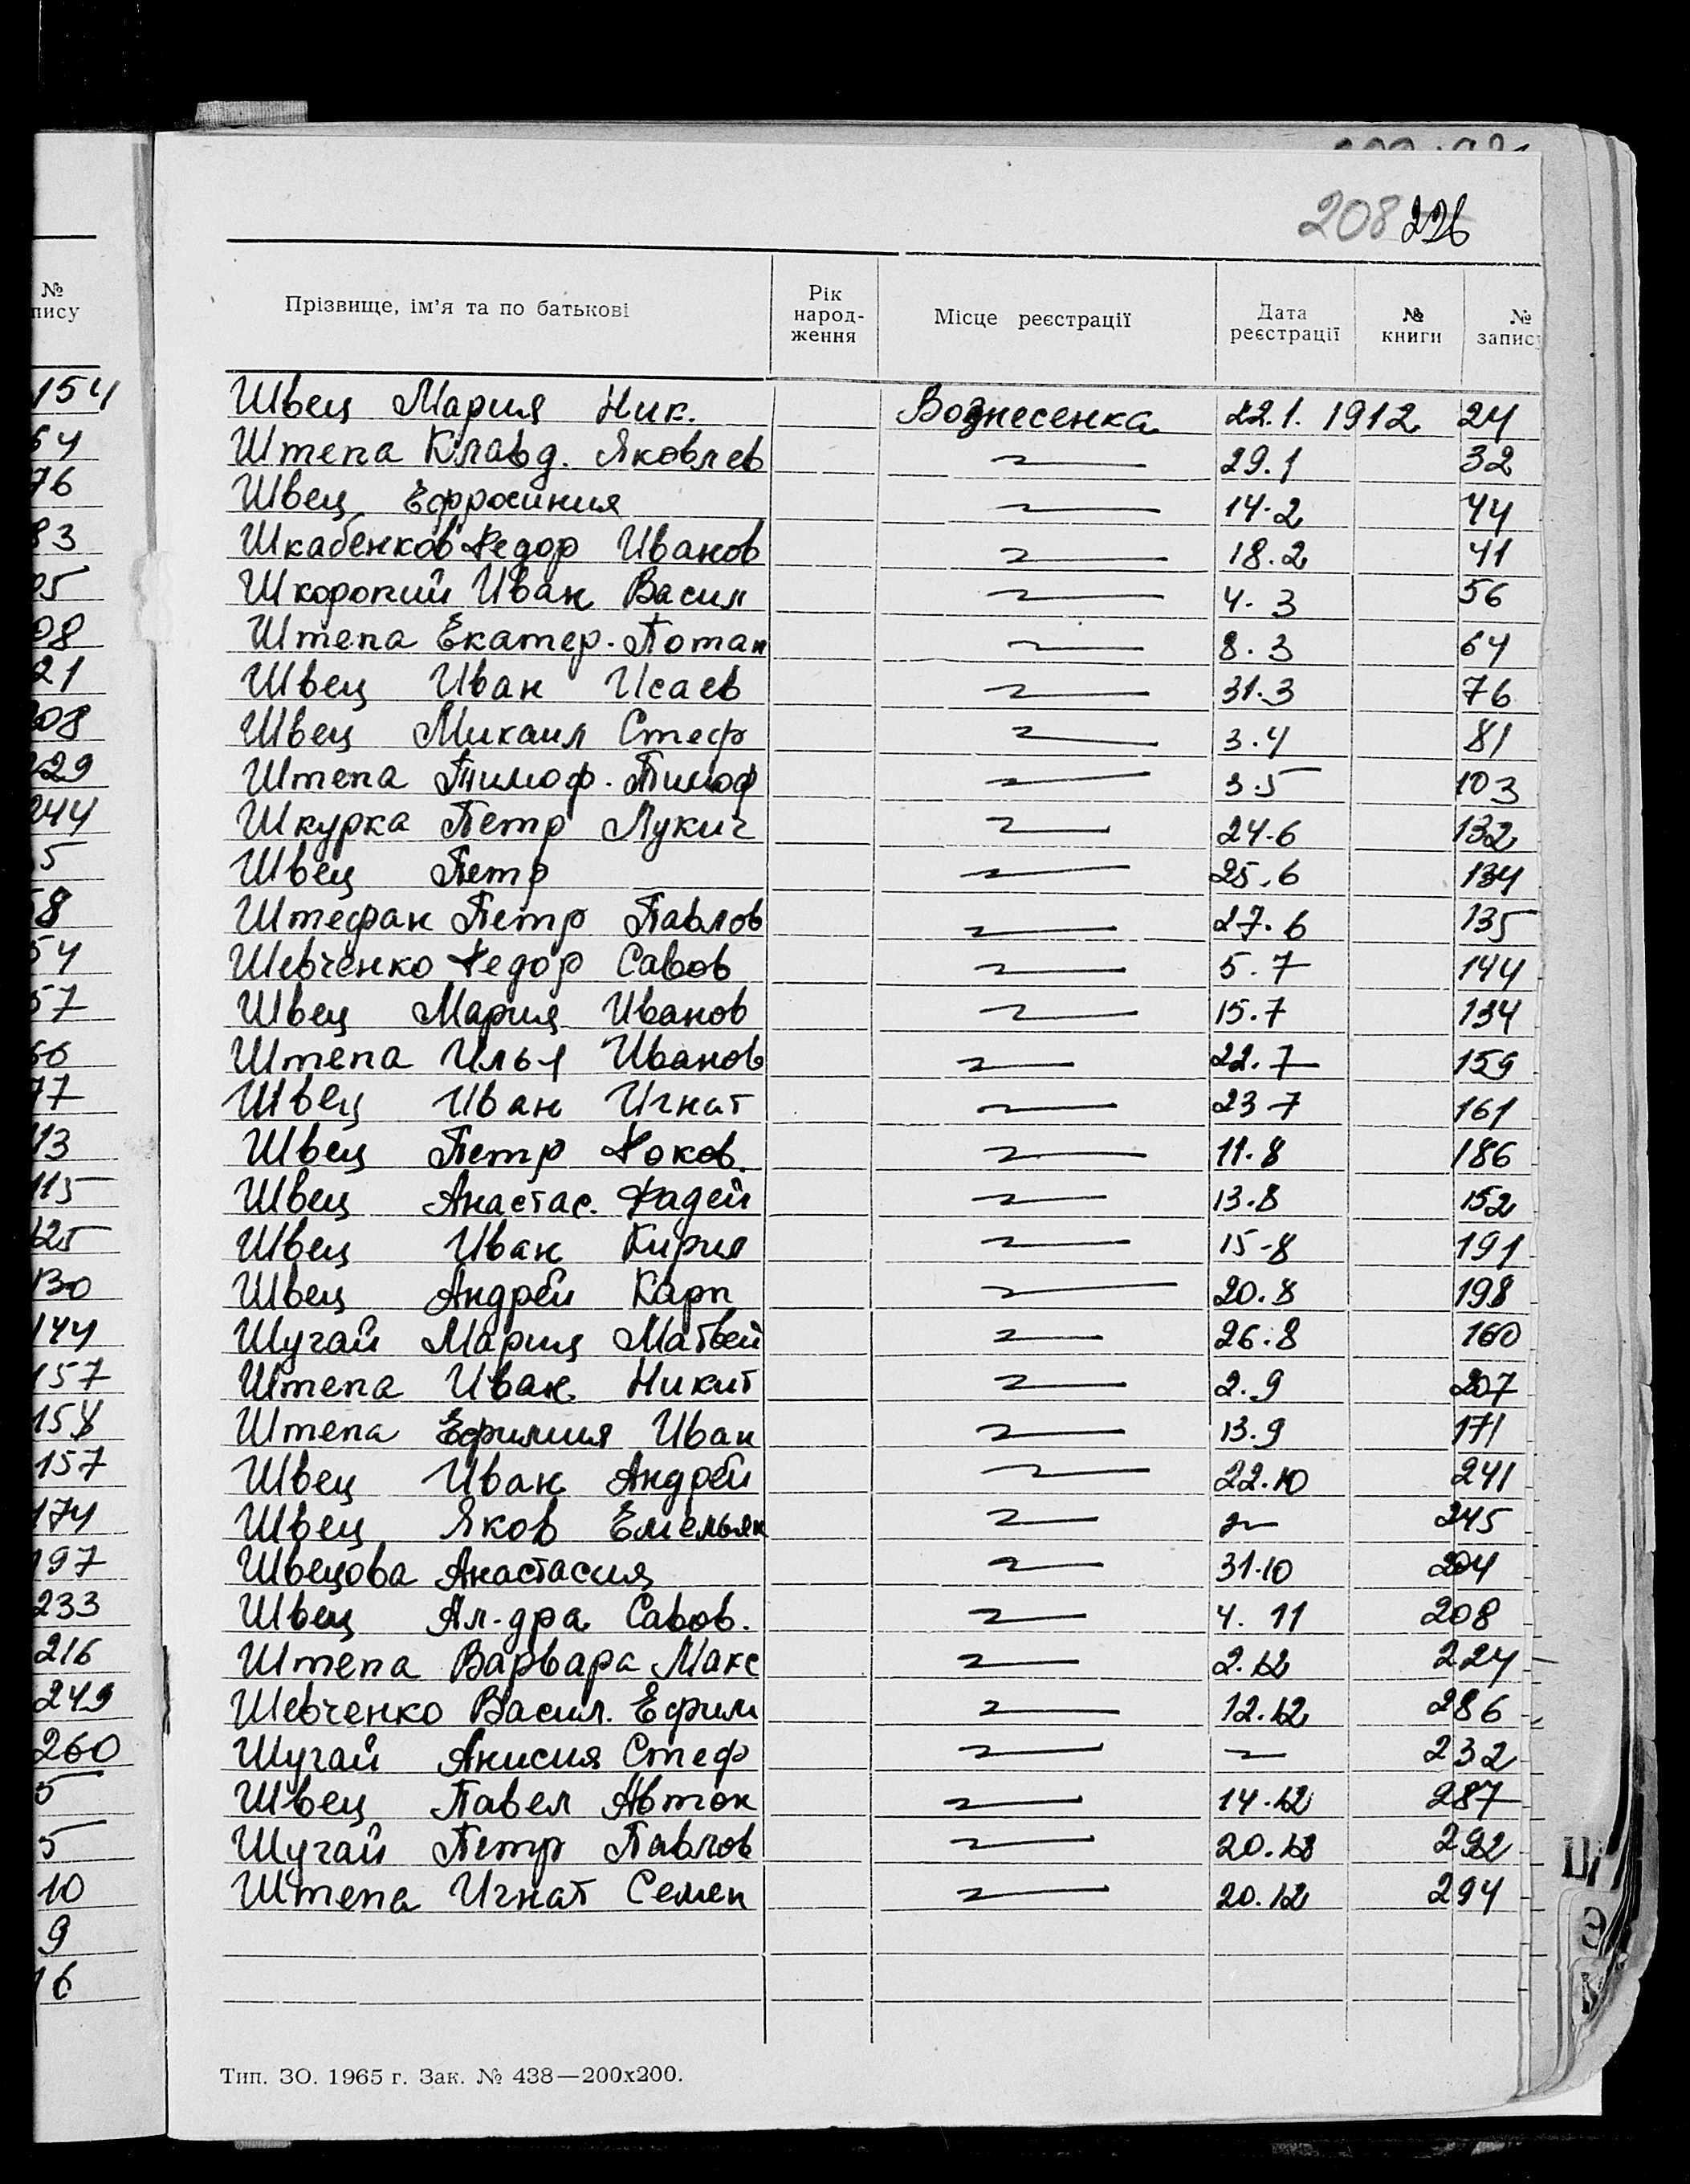 208 226
№ пису
Прізвище, ім'я та по батькові Рік народ- ження Місце реєстрації Дата реєстрації № книги № запису
154 Швец Мария Ник. Вознесенка 22.1. 1912 24
64 Штепа Клавд. Яковлев 〃 29.1 32
76 Швец Ефросиния 〃 14.2 44
83 Шкабенков Федор Иванов 〃 18.2 41
05 Шкоропий Иван Васил 〃 4.3 56
08 Штепа Екатер. Потап 〃 8.3 64
21 Швец Иван Исаев 〃 31.3 76
208 Швец Михаил Стеф 〃 3.4 81
229 Штепа Тимоф. Тимоф 〃 3.5 103
244 Шкурка Петр Лукич 〃 24.6 132
5 Швец Петр 〃 25.6 134
58 Штефан Петр Павлов 〃 27.6 135
54 Шевченко Федор Савов 〃 5.7 144
57 Швец Мария Иванов 〃 15.7 134
66 Штепа Илья Иванов 〃 22.7 159
77 Швец Иван Игнат 〃 23 7 161
113 Швец Петр Фоков. 〃 11.8 186
115 Швец Анастас. Фадей 〃 13.8 152
125 Швец Иван Кирил 〃 15-8 191
130 Швец Андрей Карп 〃 20.8 198
144 Шугай Мария Матвей 〃 26.8 160
157 Штепа Иван Никит 〃 2.9 207
158 Штепа Ефимия Иван 〃 13.9 171
157 Швец Иван Андрей 〃 22.10 241
174 Швец Яков Емельян 〃 〃 245
197 Швецова Анастасия 〃 31.10 204
233 Швец Ал-дра Савов. 〃 4. 11 208
216 Штепа Варвара Макс 〃 2.12 224
249 Шевченко Васил. Ефим 〃 12.12 286
260 Шугай Анисия Стеф 〃 〃 232
5 Швец Павел Автон 〃 14.12 287
5 Шугай Петр Павлов 〃 20.12 292
10 Штепа Игнат Семен 〃 20.12 294
9
16
Э
Тип. ЗО. 1965 г. Зак. № 438—200х200.